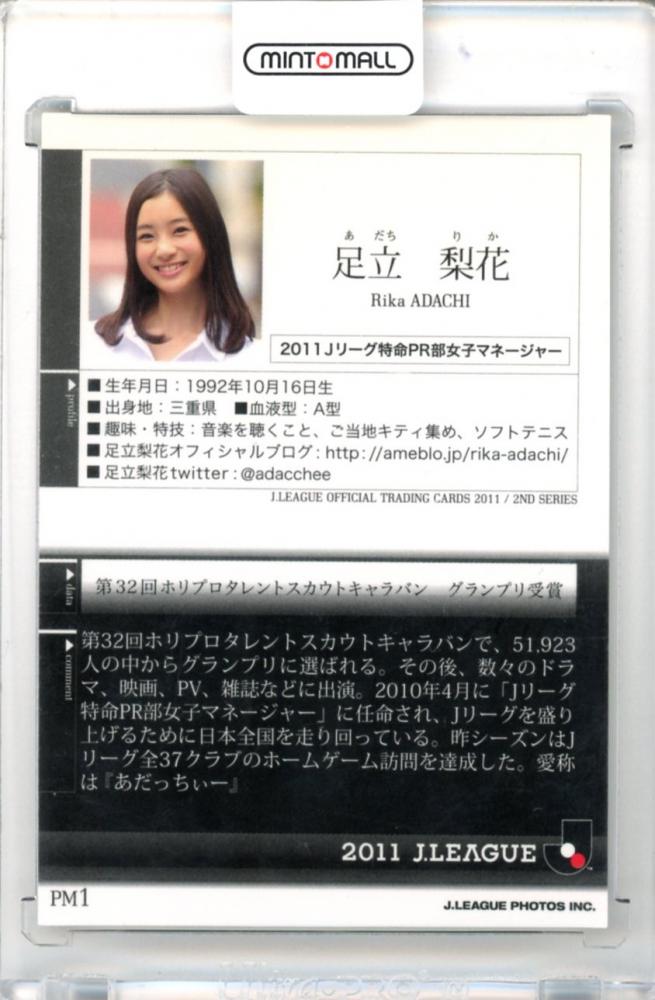 MINTOMALL
あ だち り か
足立 梨花
Rika ADACHI
2011Jリーグ特命PR部女子マネージャー
profile
■生年月日：1992年10月16日生
■出身地：三重県 ■血液型：A型
■趣味・特技：音楽を聴くこと、ご当地キティ集め、ソフトテニス
■足立梨花オフィシャルブログ：http://ameblo.jp/rika-adachi/
■足立梨花twitter：@adacchee
J.LEAGUE OFFICIAL TRADING CARDS 2011 / 2ND SERIES
data
第32回ホリプロタレントスカウトキャラバン グランプリ受賞
comment
第32回ホリプロタレントスカウトキャラバンで、51,923
人の中からグランプリに選ばれる。その後、数々のドラ
マ、映画、PV、雑誌などに出演。2010年4月に「Jリーグ
特命PR部女子マネージャー」に任命され、Jリーグを盛り
上げるために日本全国を走り回っている。昨シーズンはJ
リーグ全37クラブのホームゲーム訪問を達成した。愛称
は『あだっちぃー』
2011 J.LEAGUE
PM1
J.LEAGUE PHOTOS INC.